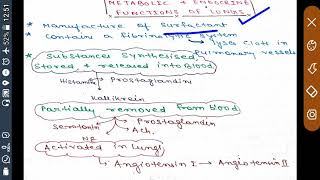 12:51
52%
METABOLIC + ENDOCRINE
FUNCTIONS OF LUNGS
* Manufacture of surfactant
* Contain a fibrinolytic system
lyse clots in
pulmonary vessels
* Substances Synthesised,
Stored & released into Blood
Histamine Prostaglandin
Kallikrain
Partially removed from blood
Serotonin Prostaglandin
NE Ach.
Activated in Lungs
Angiotensin I → Angiotensin II